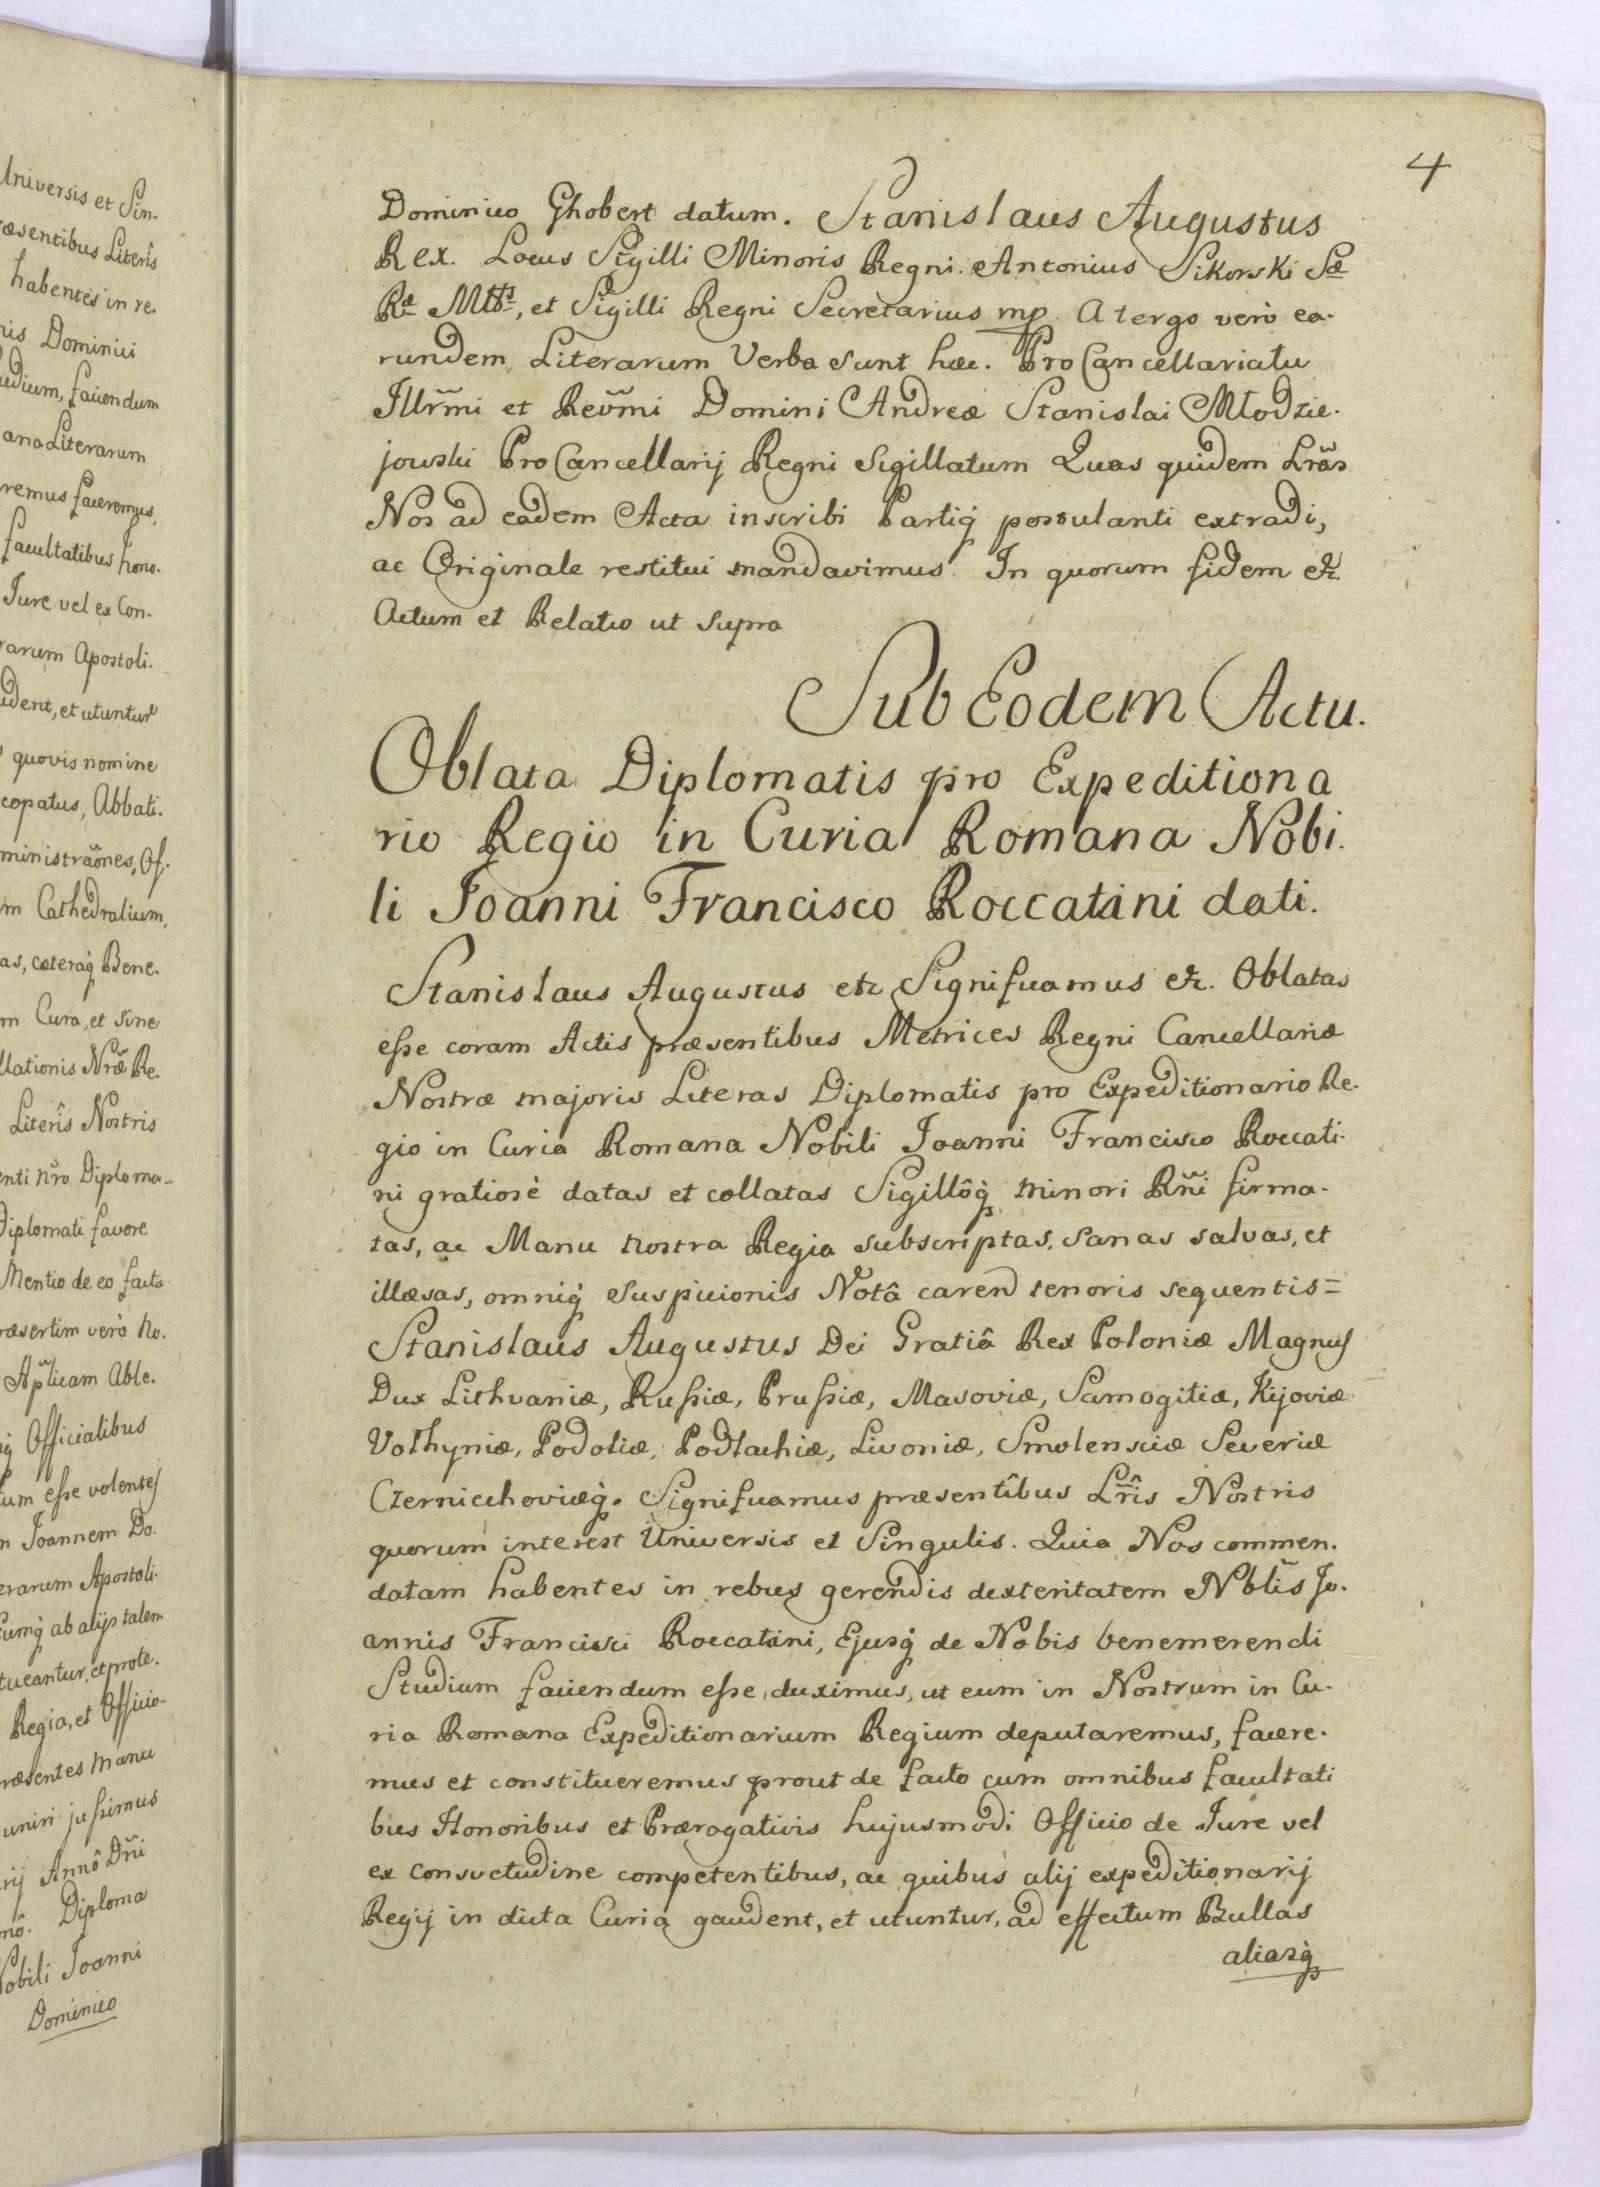 Universis et Sin-
ræsentibus Literîs
habentes in re.
nis Dominici
udium, faciendum
ana Literarum
remus faceremus,
facultatibus hono-
Jure vel ex Con-
rarum Apostoli-
udent, et utuntur
quovis nomine
copatus, Abbati-
ministrãones, Of-
m Cathedralium,
as, cæteraq́ Bene-
m Cura, et sine
llationis Nræ̃ Re-
Literîs Nostris
enti nr̃o Diploma-
Diplomati favore
Mentio de eo facta
ræsertim verò No-
Ap̃licam Able-
q́ Officialibus
tum esse volentes
m Joannem Do-
erarum Apostoli-
cumq́ ab alijs talem
tueantur, et prote-
Regia, et Officio-
ræsentes Manu
uniri jussimus
rij Annô Dñi
mô. Diploma
Nobili Joanni
Dominico
4
Dominico Ghobert datum. Stanislaus Augustus
Rex. Locus Sigilli Minoris Regni. Antonius Sikorski Sæ
Ræ Mttis, et Sigilli Regni Secretarius mp. A tergo verò ea-
rundem Literarum Verba sunt hæc. Pro Cancellariatu
Illr̃mi et Reṽmi Domini Andreæ Stanislai Młodzie-
jowski Pro Cancellarij Regni Sigillatum Quas quidem Lrãs
Nos ad eadem Acta inscribi Partiq́ postulanti extradi,
ac Originale restitui mandavimus. In quorum fidem etc.
Actum et Relatio ut supra
Sub Eodem Actu.
Oblata Diplomatis pro Expeditiona
rio Regio in Curia Romana Nobi-
li Joanni Francisco Roccatani dati.
Stanislaus Augustus etc Significamus etc. Oblatas
esse coram Actis præsentibus Metrices Regni Cancellariæ
Nostræ majoris Literas Diplomatis pro Expeditionario Re-
gio in Curia Romana Nobili Joanni Francisco Roccati-
ni gratiosè datas et collatas Sigillôq́ minori Rñi firma-
tas, ac Manu nostra Regia subscriptas, sanas salvas, et
illæsas, omniq́ suspicionis Notâ caren tenoris sequentis=
Stanislaus Augustus Dei Gratiâ Rex Poloniæ Magnus
Dux Lithvaniæ, Russiæ, Prussiæ, Masoviæ, Samogitiæ, Kijoviæ
Volhyniæ, Podoliæ, Podlachiæ, Livoniæ, Smolensciæ Severiæ
Czerniechoviæq́. Significamus præsentibus Lr̃is Nostris
quorum interest Universis et Singulis. Quia Nos commen-
datam habentes in rebus gerendis dexteritatem Nblĩs Jo-
annis Francisci Roccatini, Ejusq́ de Nobis benemerendi
Studium faciendum esse duximus, ut eum in Nostrum in Cu-
ria Romana Expeditionarium Regium deputaremus, facere-
mus et constitueremus prout de facto cum omnibus facultati
bus Honoribus et Prærogativis hujusmodi Officio de Jure vel
ex consuetudine competentibus, ac quibus alij expeditionarij
Regij in dicta Curia gaudent, et utuntur, ad effectum Bullas
aliasq́